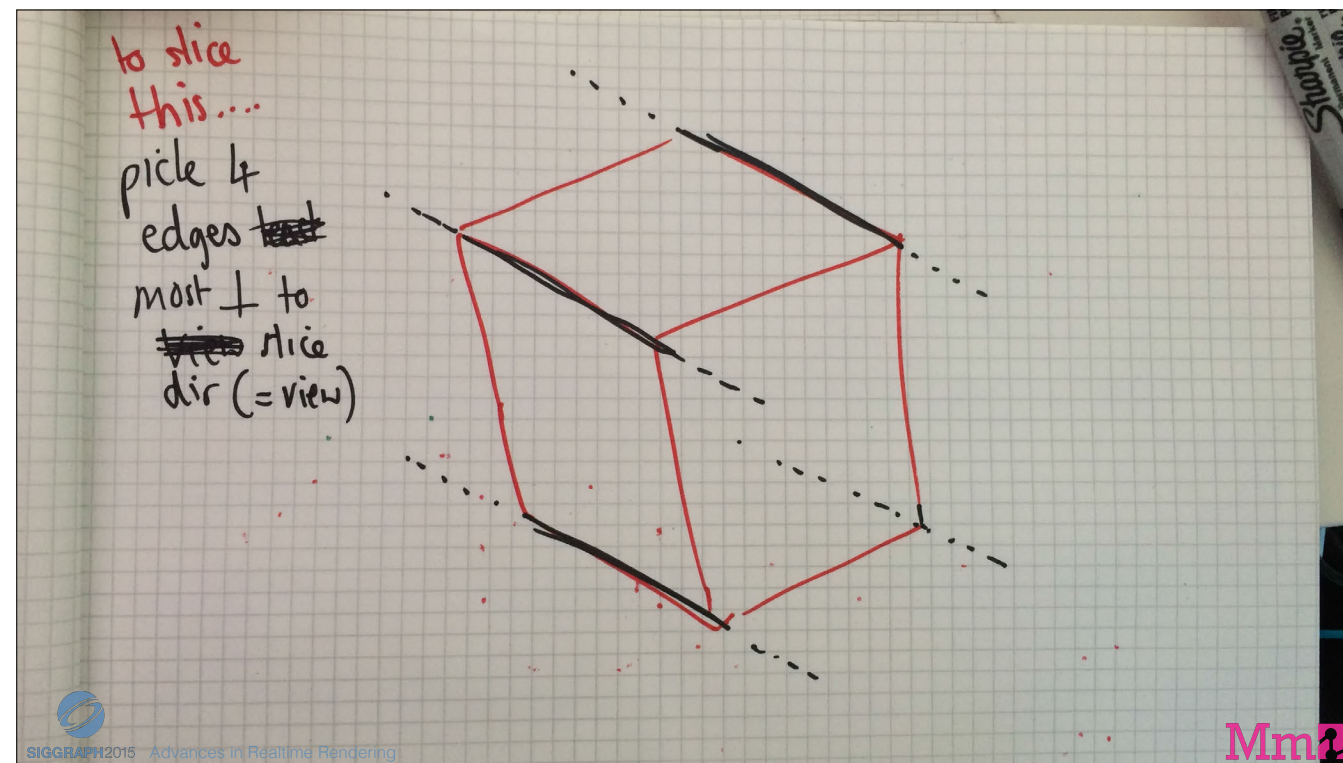 to slice
this....
pick 4
edges
most ⊥ to
slice
dir (= view)
Sharpie
SIGGRAPH2015 Advances in Realtime Rendering
Mm